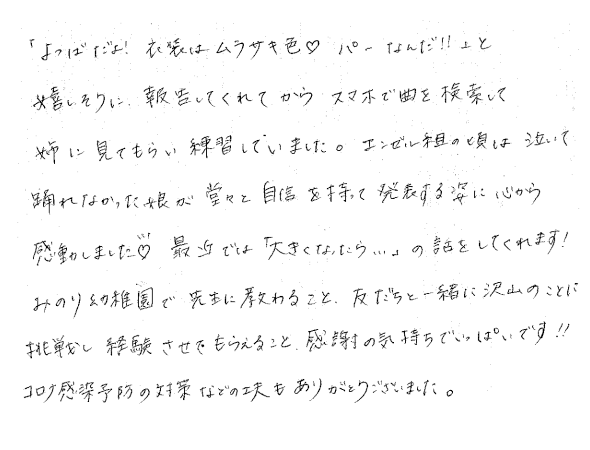 「よつばだよ! 衣装はムラサキ色♡ パーなんだ!!」と
嬉しそうに、報告してくれてから スマホで曲を検索して
姉に見てもらい練習していました。エンゼル組の頃は泣いて
踊れなかった娘が堂々と自信を持って発表する姿に心から
感動しました♡ 最近では「大きくなったら...」の話をしてくれます!
みのり幼稚園で先生に教わること、友だちと一緒に沢山のことに
挑戦し経験させてもらえること、感謝の気持ちでいっぱいです!!
コロナ感染予防の対策などの工夫もありがとうございました。